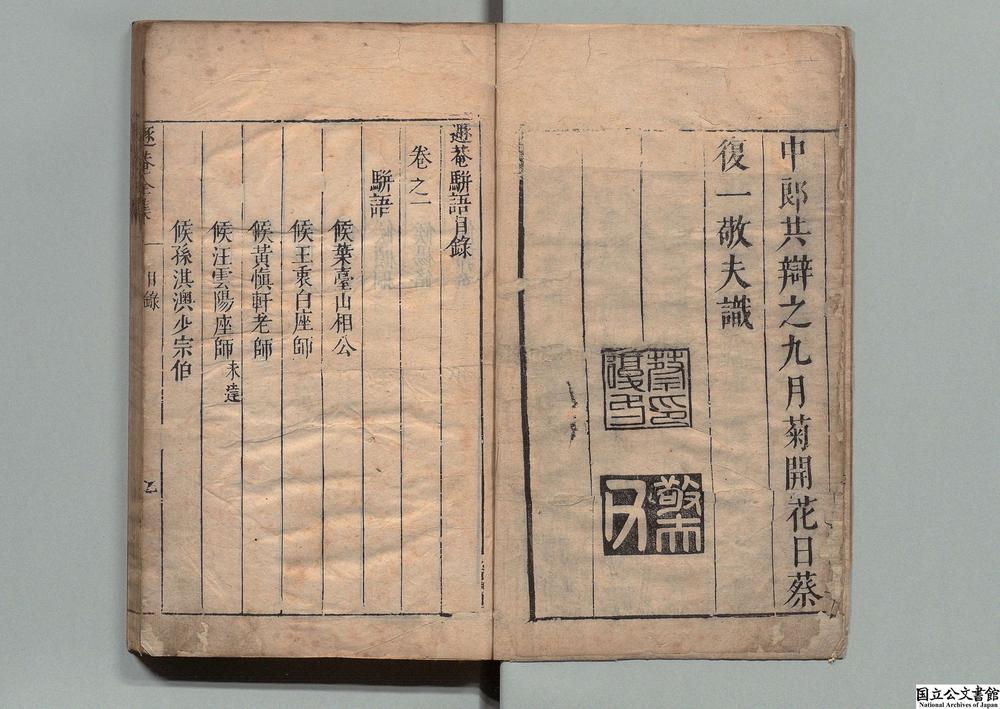 中郎共辯之九月菊開花日蔡
復一敬夫識
蔡印
復一
敬夫
遯菴駢語目錄
卷之一
駢語
候葉臺山相公
候王衷白座師
候黃慎軒老師
候汪雲陽座師未達
候孫淇澳少宗伯
遯菴全集
目錄
国立公文書館
National Archives of Japan